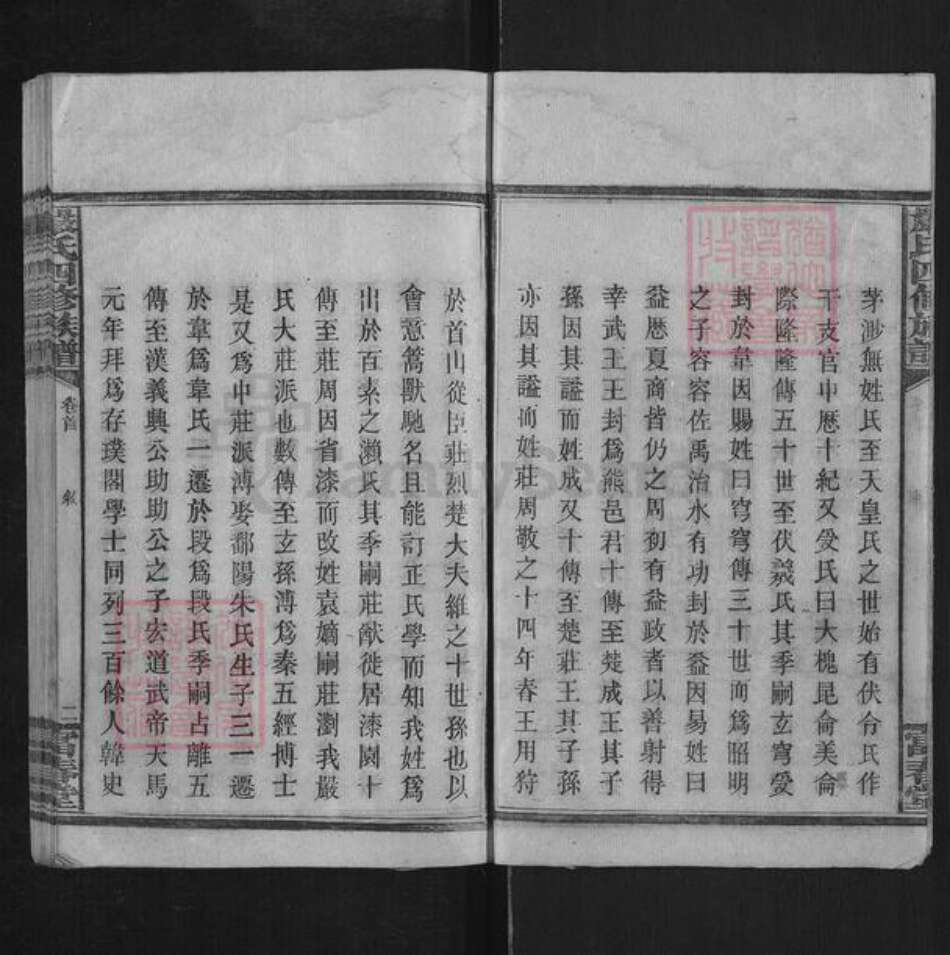 茅渺無姓氏至天皇氏之世始有伏兮氏作
干支官中厯十紀又爰氏曰大槐昆侖美侖
際隆隆傳五十世至伏羲氏其季嗣玄穹爰
封於韋因賜姓曰穹穹傳三十世而爲昭明
之子容容佐禹治水有功封於益因易姓曰
益厯夏商皆仍之周初有益政者以善射得
幸武王王封爲熊邑君十傳至楚成王其子
孫因其謚而姓成又十傳至楚莊王其子孫
亦因其謚而姓莊周敬之十四年春王用狩
於首山從臣莊烈楚大夫維之十世孫也以
會意篙獸馳名且能訂正氏學而知我姓爲
出於百素之瀨氏其季嗣莊猷徙居漆園十
傳至莊周因省漆而改姓袁嫡嗣莊瀏我嚴
氏大莊派也數傳至玄孫溥爲秦五經博士
是又爲中莊派溥娶鄱陽朱氏生子三一遷
於韋爲韋氏一遷於段爲段氏季嗣占離五
傳至漢義興公助助公之子宏道武帝天馬
元年拜爲存璞閣學士同列三百餘人韓史
嚴氏四修族譜
卷首
敘
二
富春堂
嚴氏四修族譜
富春堂